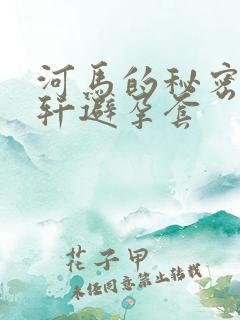 河马的秘密
轩避孕套
花子甲
未经同意禁止转载